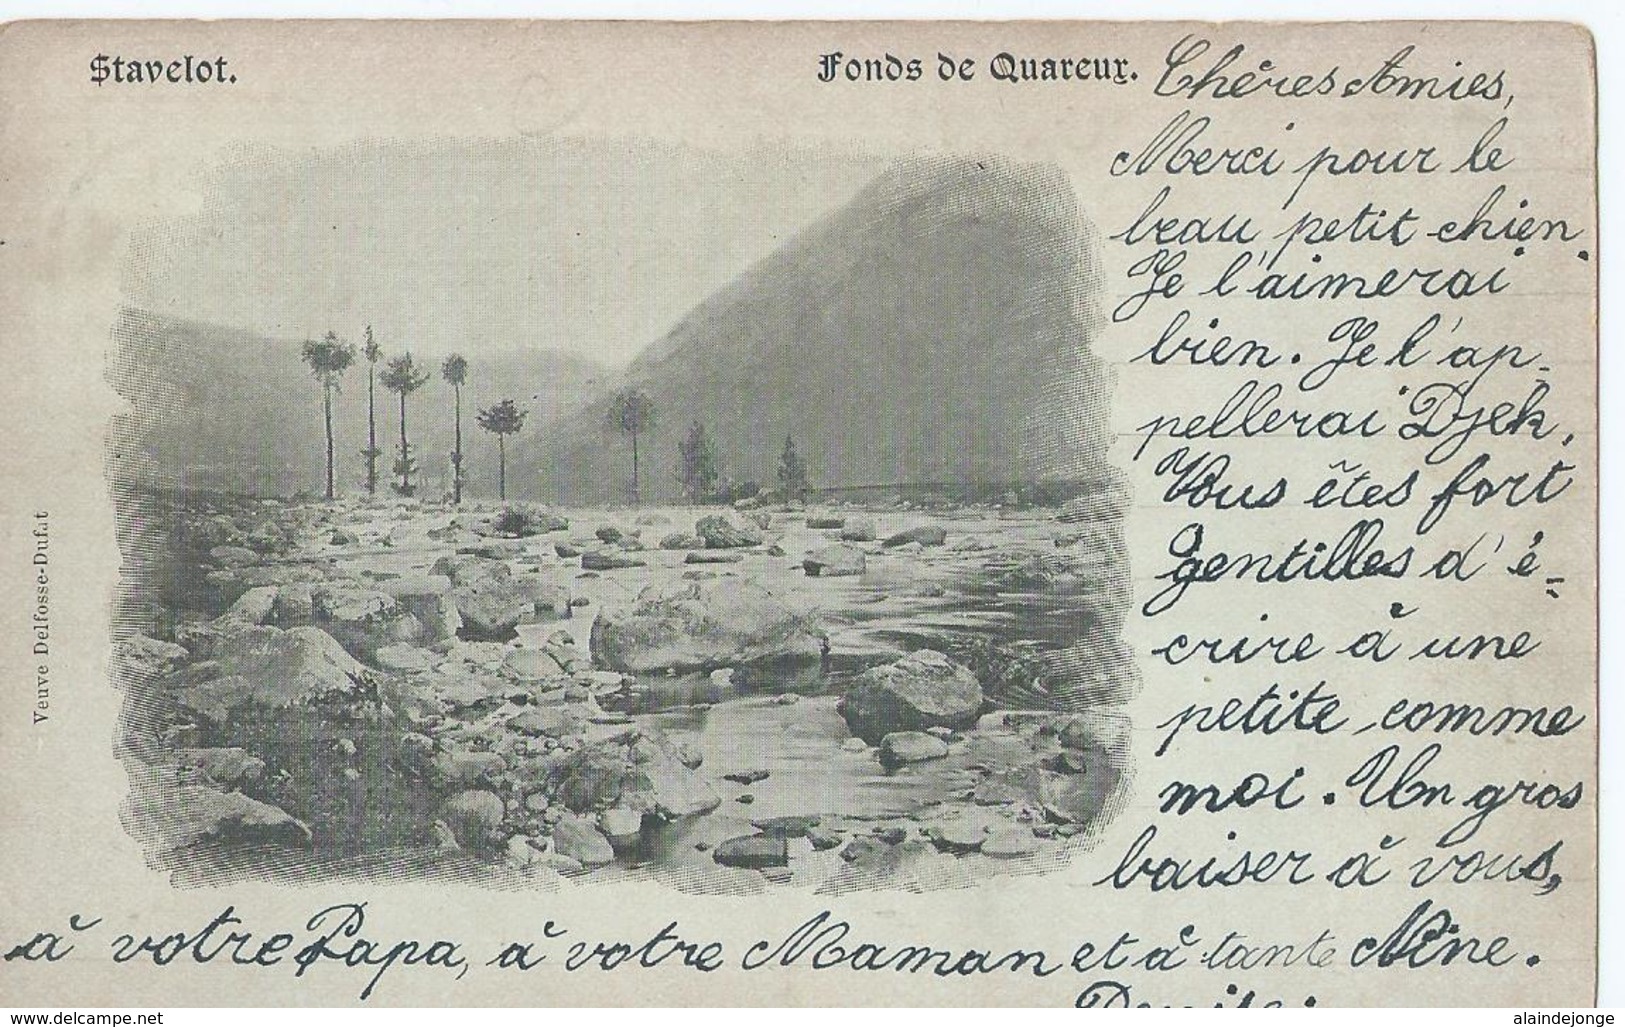 Stavelot.
Fonds de Quareux.
Chères Amies,
Merci pour le
beau petit chien.
Je l'aimerai
bien. Je l'ap-
pellerai Djek.
Vous êtes fort
gentilles d'é-
crire à une
petite comme
moi. Un gros
baiser à vous,
à votre Papa, à votre Maman et à tante Nène.
Veuve Delfosse-Dufat
www.delcampe.net
alaindejonge